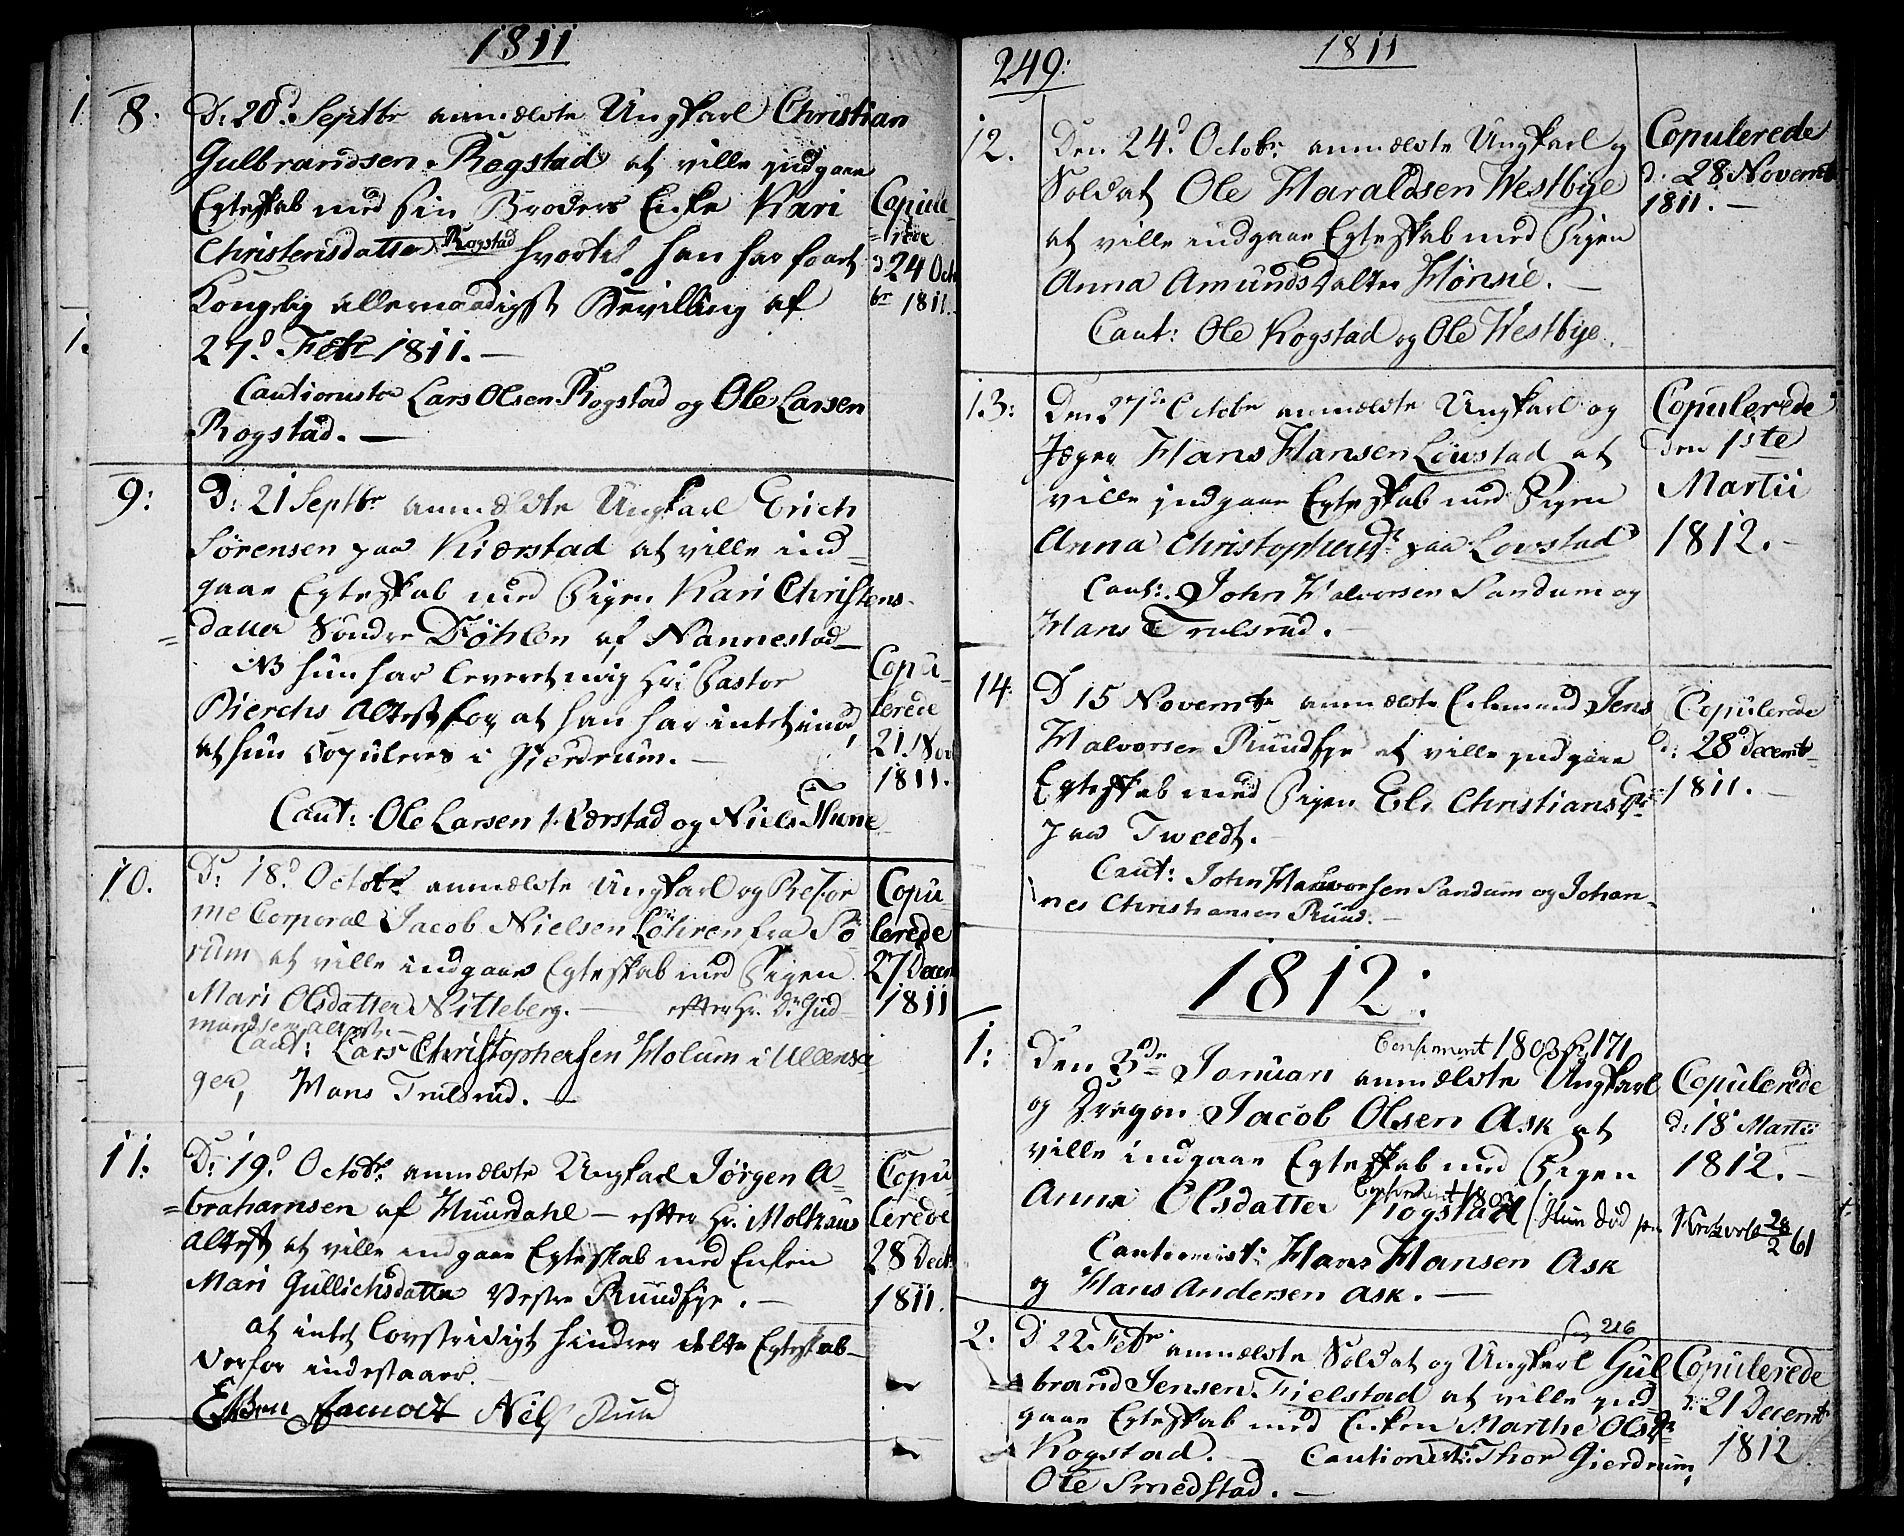 1811
8. D: 20d Septbr anmældte Ungkarl Christian
Gulbrandsen Rogstad at ville jndgaae
Egteskab med sin Broders Enke Kari
Christensdatter Rogstad hvortil han har faaet
Kongelig allernaadigst Bevilling af
27d Febr 1811.
Cautionister Lars Olsen Rogstad og Ole Larsen
Rogstad.
Copule-
=rede
d 24 Octo
br 1811.
9: D: 21 Septbr anmældte Ungkarl Erich
Sørensen paa Kiærstad at ville ind-
gaae Egteskab med Pigen Kari Christens-
=datter Søndre Døhlen af Nannestad
NB hun har leveret mig Hr: Pastor
Bierchs Attest for, at han har intet imod,
at hun Copuleres i Gjerdrum.
Caut: Ole Larsen Kiærstad og Niels Thune
Copu-
lerede
21. Nov
1811.
10. D: 18d Octobr anmældte Ungkarl og Refor
me Corporal Jacob Nielsen Løhren fra Sø
rum at ville indgaae Egteskab med Pigen
Mari Olsdatter Nitteberg. efter Hr. Dr Gud-
mundsens Attest.
Caut: Lars Christophersen Holum i Ullensa
ger, Hans Trulsrud.
Copu-
lerede
27 Decem
1811
11. D: 19d Octobr anmældte Ungkarl Jørgen A-
=brahamsen af Huurdahl – efter Hr. Moltzaus
Attest at ville indgaae Egteskab med Enken
Mari Gullichsdatter Vestre Ruudhye.
At intet Lovstridigt hindrer dette Egteskab
derfor indestaaer.
Niels Ruud
Copu-
lerede
28 Decb
1811.
249:
1811
12. Den 24d Octobr anmældte Ungkarl og
Soldat Ole Haraldsen Westbye
at ville indgaae Egteskab med Pigen
Anna Amundsdatter Hønsie.
Caut: Ole Rogstad og Ole Westbye.
Copulerede
d. 28 Novemb
1811.
13: Den 27de Octobr anmældte Ungkarl og
Jæger Hans Hansen Løwstad at
ville jndgaae Egteskab med Pigen
Anna Christophersdr paa Lovstad
Caut: John Halvorsen Sandum og
Hans Trulsrud.
Copulerede
den 1ste
Martii
1812.
14: D 15 Novembr anmældte Enkemand Jens
Halvorsen Ruudhye at ville jndgaae
Egteskab med Pigen Eli Christiansdr
paa Tweedt.
Caut: John Halvorsen Sandum og Johan-
nes Christiansen Ruud.
Copulerede
d: 28d Decemb
1811.
1812:
Confirmert 1803 S. 171
1: Den 3de Januari anmældte Ungkarl
og Dragon Jacob Olsen Ask at
ville indgaae Egteskab med Pigen
Confirmert 1803
Anna Olsdatter Rogstad (Hun død 28/2 61
Cautionist: Hans Hansen Ask
og Hans Andersen Ask.
Copulerede
d: 18 Martii
1812.
216
2. D 22 Febr anmældte Soldat og Ungkarl Gul
brand Jensen Fielstad at ville jnd-
gaae Egteskab med Enken Marthe Olsdr
Rogstad. Cautionist: Thor Gierdrum,
Ole Smedstad.
Copulerede
d: 21 Decemb
1812.